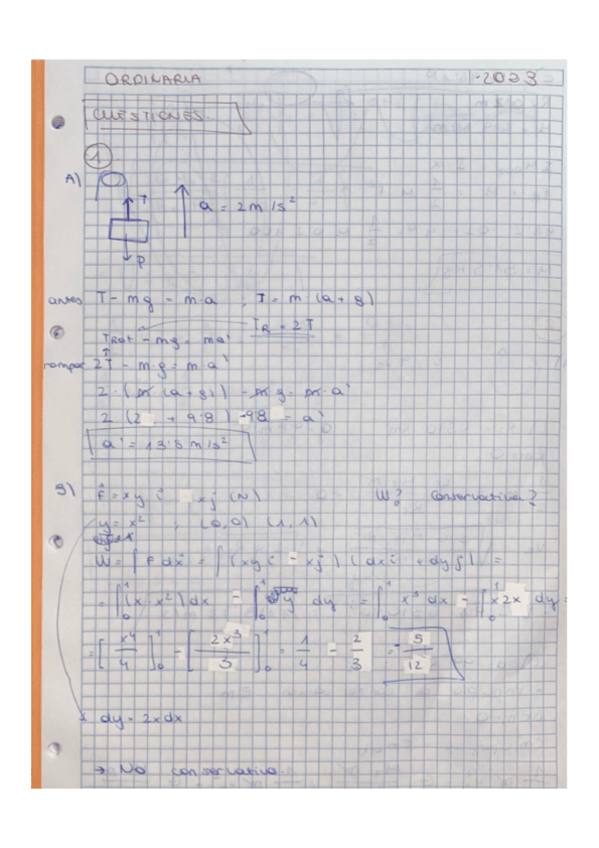 ORDINARIA 1-2023
CUESTIONES.
1
A)
T
a = 2m/s²
P
antes T - mg = m·a ; T = m·(a+g)
TRot - mg = ma' TR = 2T
romper 2T - m·g = m a'
2·(m(a+g)) - m g = m·a'
2 (2 + 9'8) - 9'8 = a'
a' = 13'8 m/s²
B) F = xy i - xj (N) W? Conservativa?
y = x² ; (0,0) (1,1)
W = ∫F dx = ∫(xyi - xj)(dxi + dyj) =
= ∫₀¹(x·x²)dx - ∫₀¹ y dy = ∫₀¹ x³ dx - ∫₀¹ x2x dy =
= [x⁴/4]₀¹ - [2x³/3]₀¹ = 1/4 - 2/3 = -5/12
dy = 2xdx
→ No conservativa.